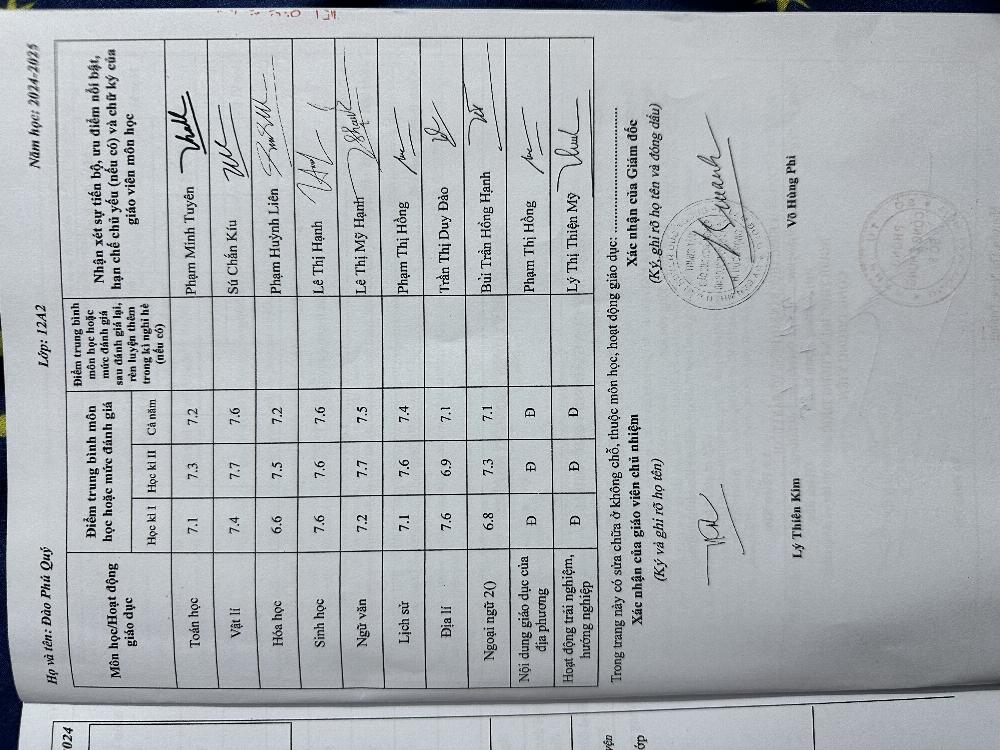 Họ và tên: Đào Phú Quý Lớp: 12A2 Năm học: 2024-2025
Môn học/Hoạt động giáo dục
Điểm trung bình môn học hoặc mức đánh giá
Học kì I Học kì II Cả năm
Điểm trung bình môn học hoặc mức đánh giá sau đánh giá lại, rèn luyện thêm trong kì nghỉ hè (nếu có)
Nhận xét sự tiến bộ, ưu điểm nổi bật, hạn chế chủ yếu (nếu có) và chữ ký của giáo viên môn học
Toán học 7.1 7.3 7.2 Phạm Minh Tuyên
Vật lí 7.4 7.7 7.6 Sú Chấn Kíu
Hóa học 6.6 7.5 7.2 Phạm Huỳnh Liên
Sinh học 7.6 7.6 7.6 Lê Thị Hạnh
Ngữ văn 7.2 7.7 7.5 Lê Thị Mỹ Hạnh
Lịch sử 7.1 7.6 7.4 Phạm Thị Hồng
Địa lí 7.6 6.9 7.1 Trần Thị Duy Đảo
Ngoại ngữ 2() 6.8 7.3 7.1 Bùi Trần Hồng Hạnh
Nội dung giáo dục của địa phương Đ Đ Đ Phạm Thị Hồng
Hoạt động trải nghiệm, hướng nghiệp Đ Đ Đ Lý Thị Thiện Mỹ
Trong trang này có sửa chữa ở không chỗ, thuộc môn học, hoạt động giáo dục: ........................
Xác nhận của giáo viên chủ nhiệm Xác nhận của Giám đốc
(Ký và ghi rõ họ tên) (Ký, ghi rõ họ tên và đóng dấu)
Lý Thiên Kim Võ Hùng Phi
024